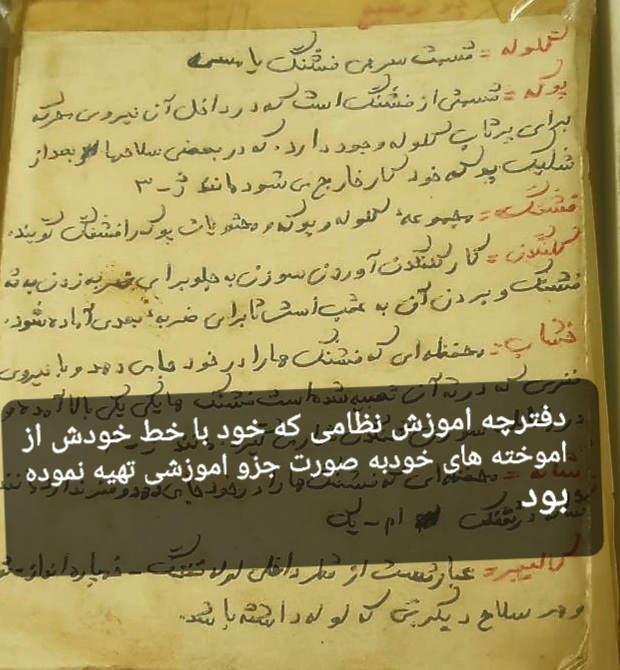 گلوله = قسمت سربی فشنگ یا مسی
پوکه = قسمتی از فشنگ است که در داخل آن نیروی محرکه
برای پرتاب گلوله وجود دارد. که در بعضی سلاحها بعد از
شلیک پوکه خود کار خارج می شود مانند ژ-۳
فشنگ = مجموعهٔ گلوله و پوکه و محتویات پوکه را فشنگ گویند.
گلنگدن = کار گلنگدن آوردن سوزن به جلو برای ضربه زدن به ته
فشنگ و بردن آن به عقب است تا برای ضربهٔ بعدی آماده شود.
خشاب = محفظه ای که فشنگ ها را در خود جای می دهد و با نیروی
فنری که در ته آن تعبیه شده است فشنگ ها یکی یکی بالا آمده و
دفترچه اموزش نظامی که خود با خط خودش از
اموخته های خودبه صورت جزو اموزشی تهیه نموده
بود
شانه = محفظه ای که فشنگ ها را در خود جای می دهد و فنر ندارد مانند
تفنگ ام-یک
کالیبر = عبارتست از قطر داخلی لوله تفنگ - خمپاره انداز - توپ
و هر سلاح دیگری که لوله داشته باشد.